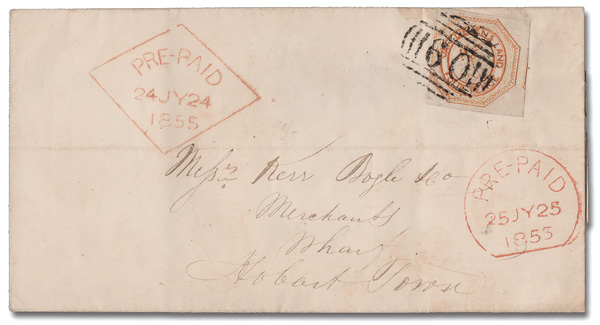 PRE-PAID
24JY24
1855
60
LAND
Messrs Kerr Bogle & Co
Merchants
Wharf
Hobart Town
PRE-PAID
25JY25
1855